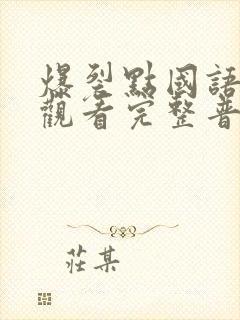 爆裂點國語
觀看完整普
莊某